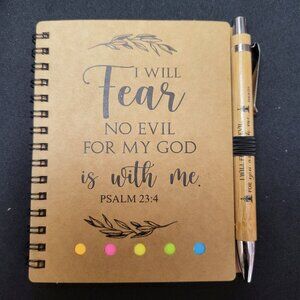 I WILL
Fear
NO EVIL
FOR MY GOD
is with me.
PSALM 23:4
I WILL F
FOR